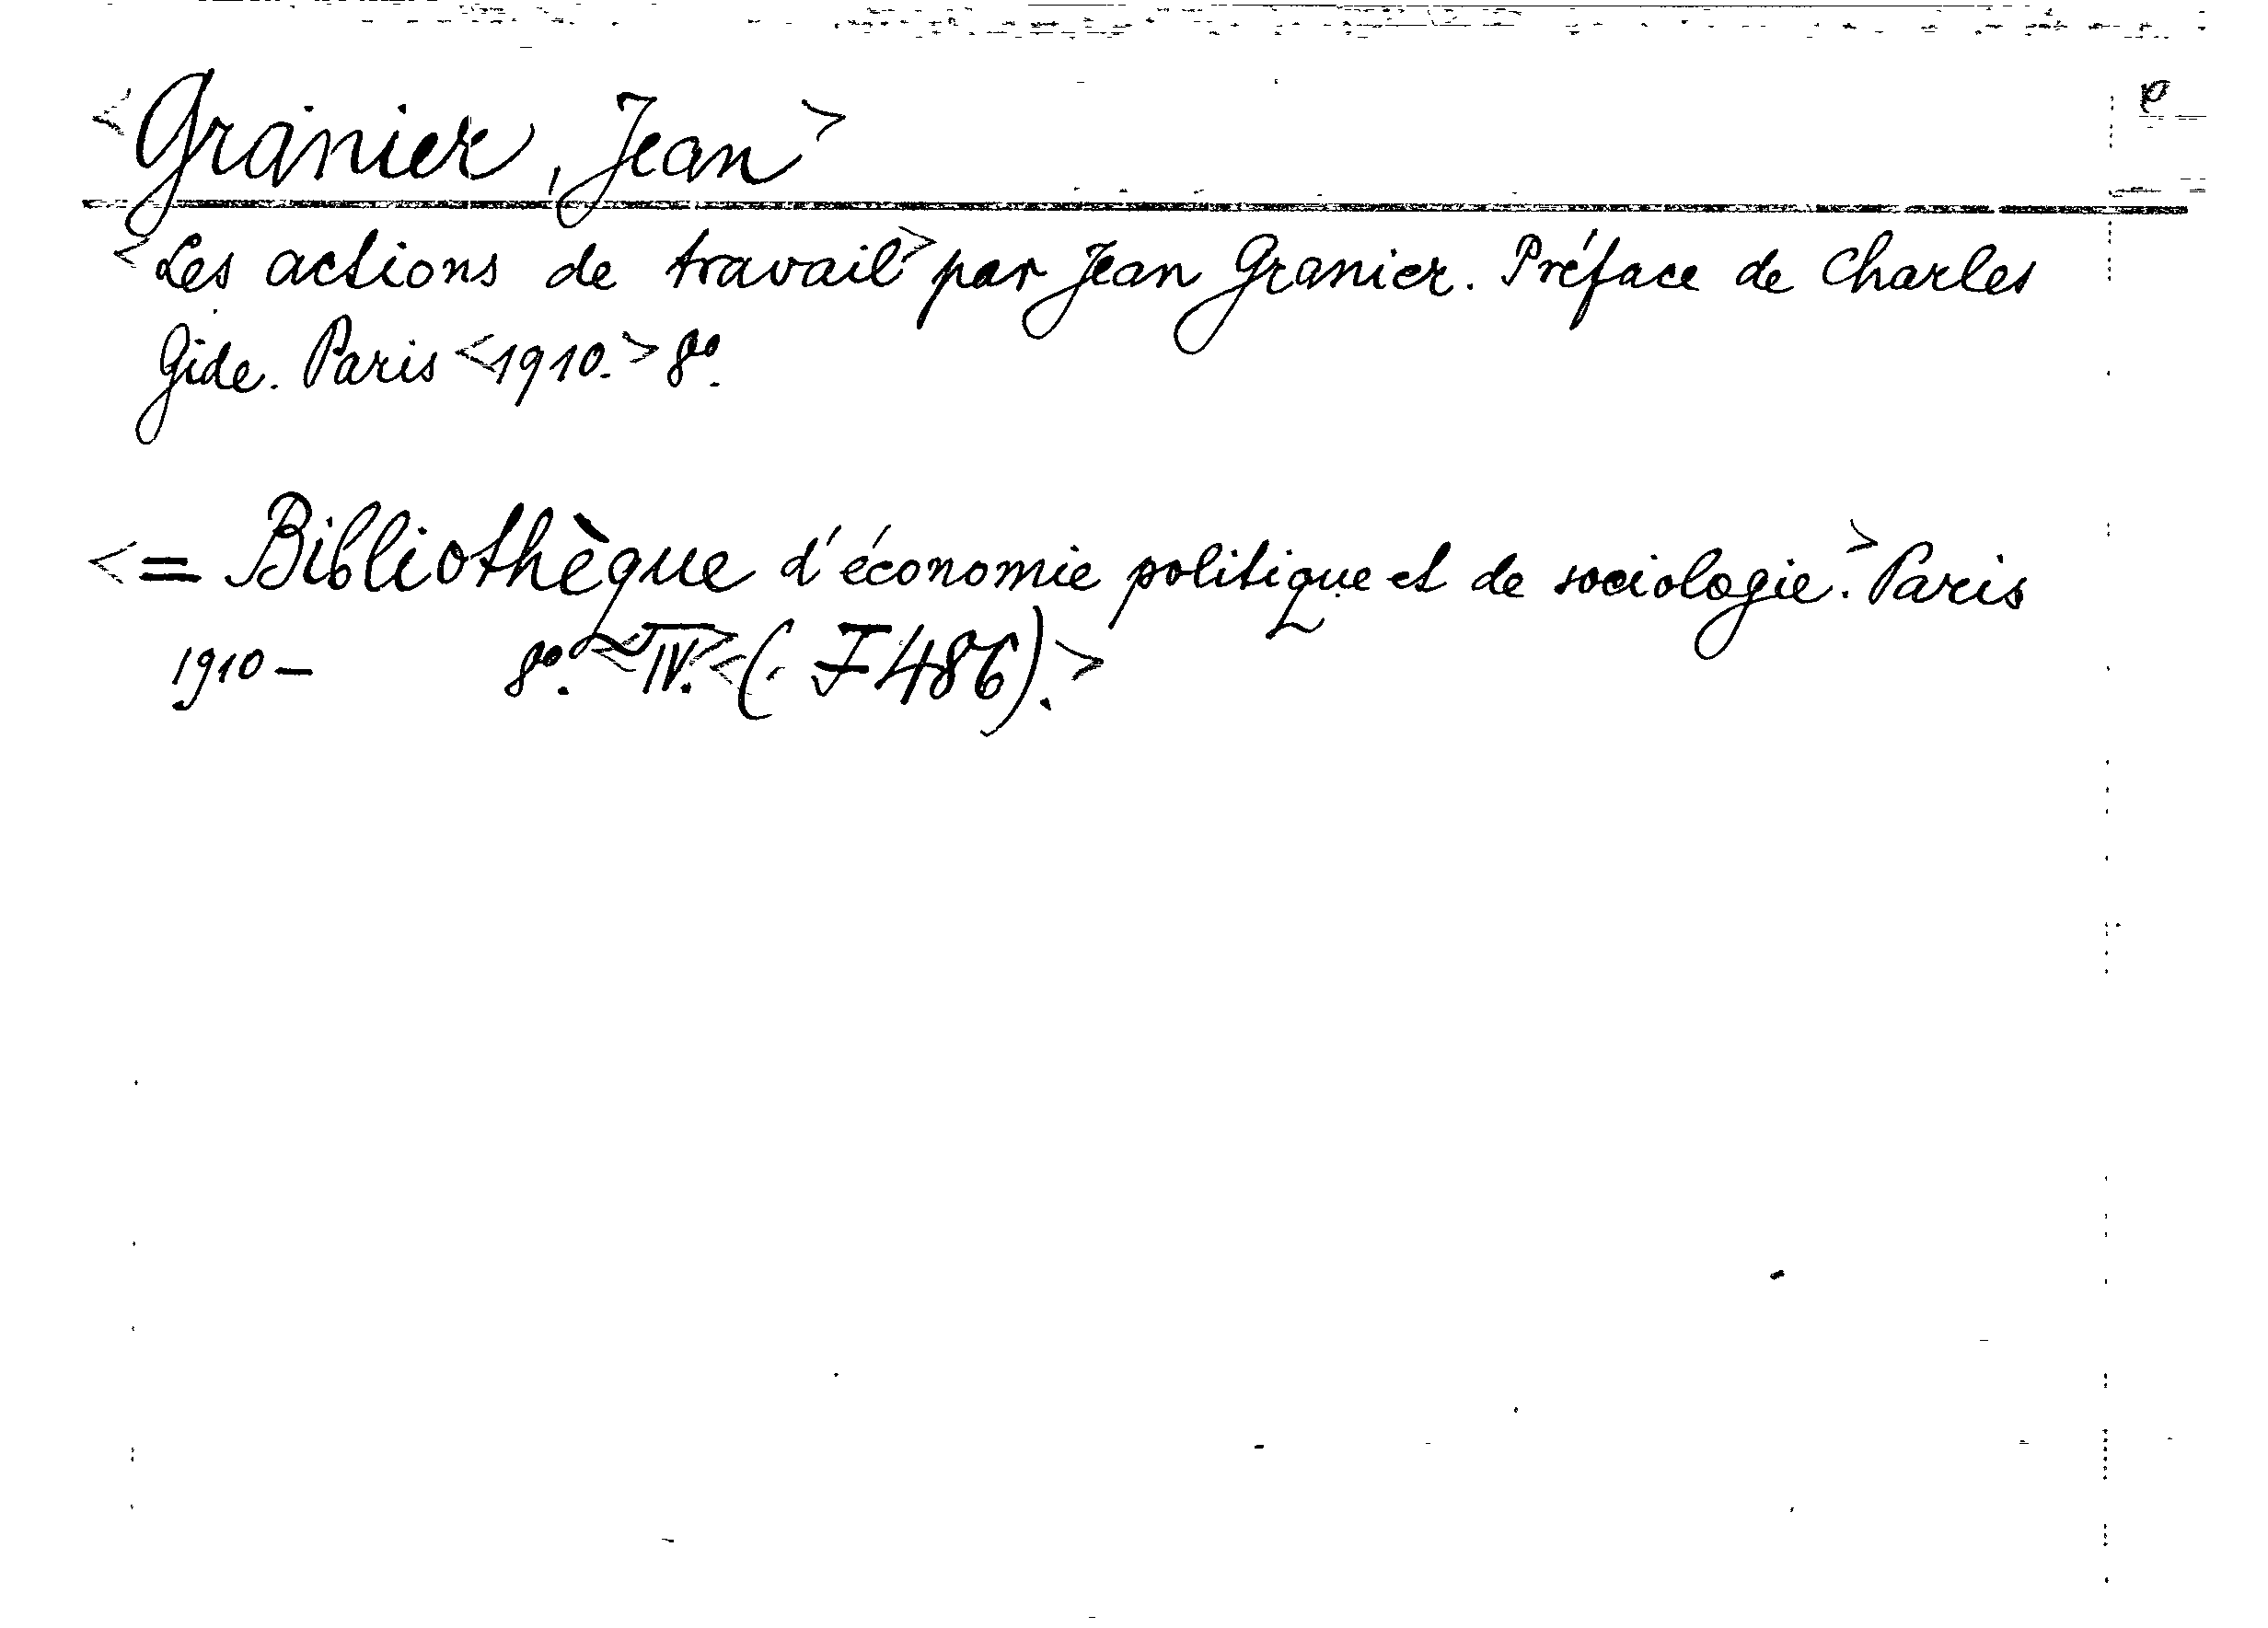 <Granier, Jean>
<Les actions de travail> par Jean Granier. Préface de Charles
Gide. Paris <1910.> 8º.
<= Bibliothèque d'économie politique et de sociologie.> Paris
1910 – 8º. <IV.> <(I 486).>